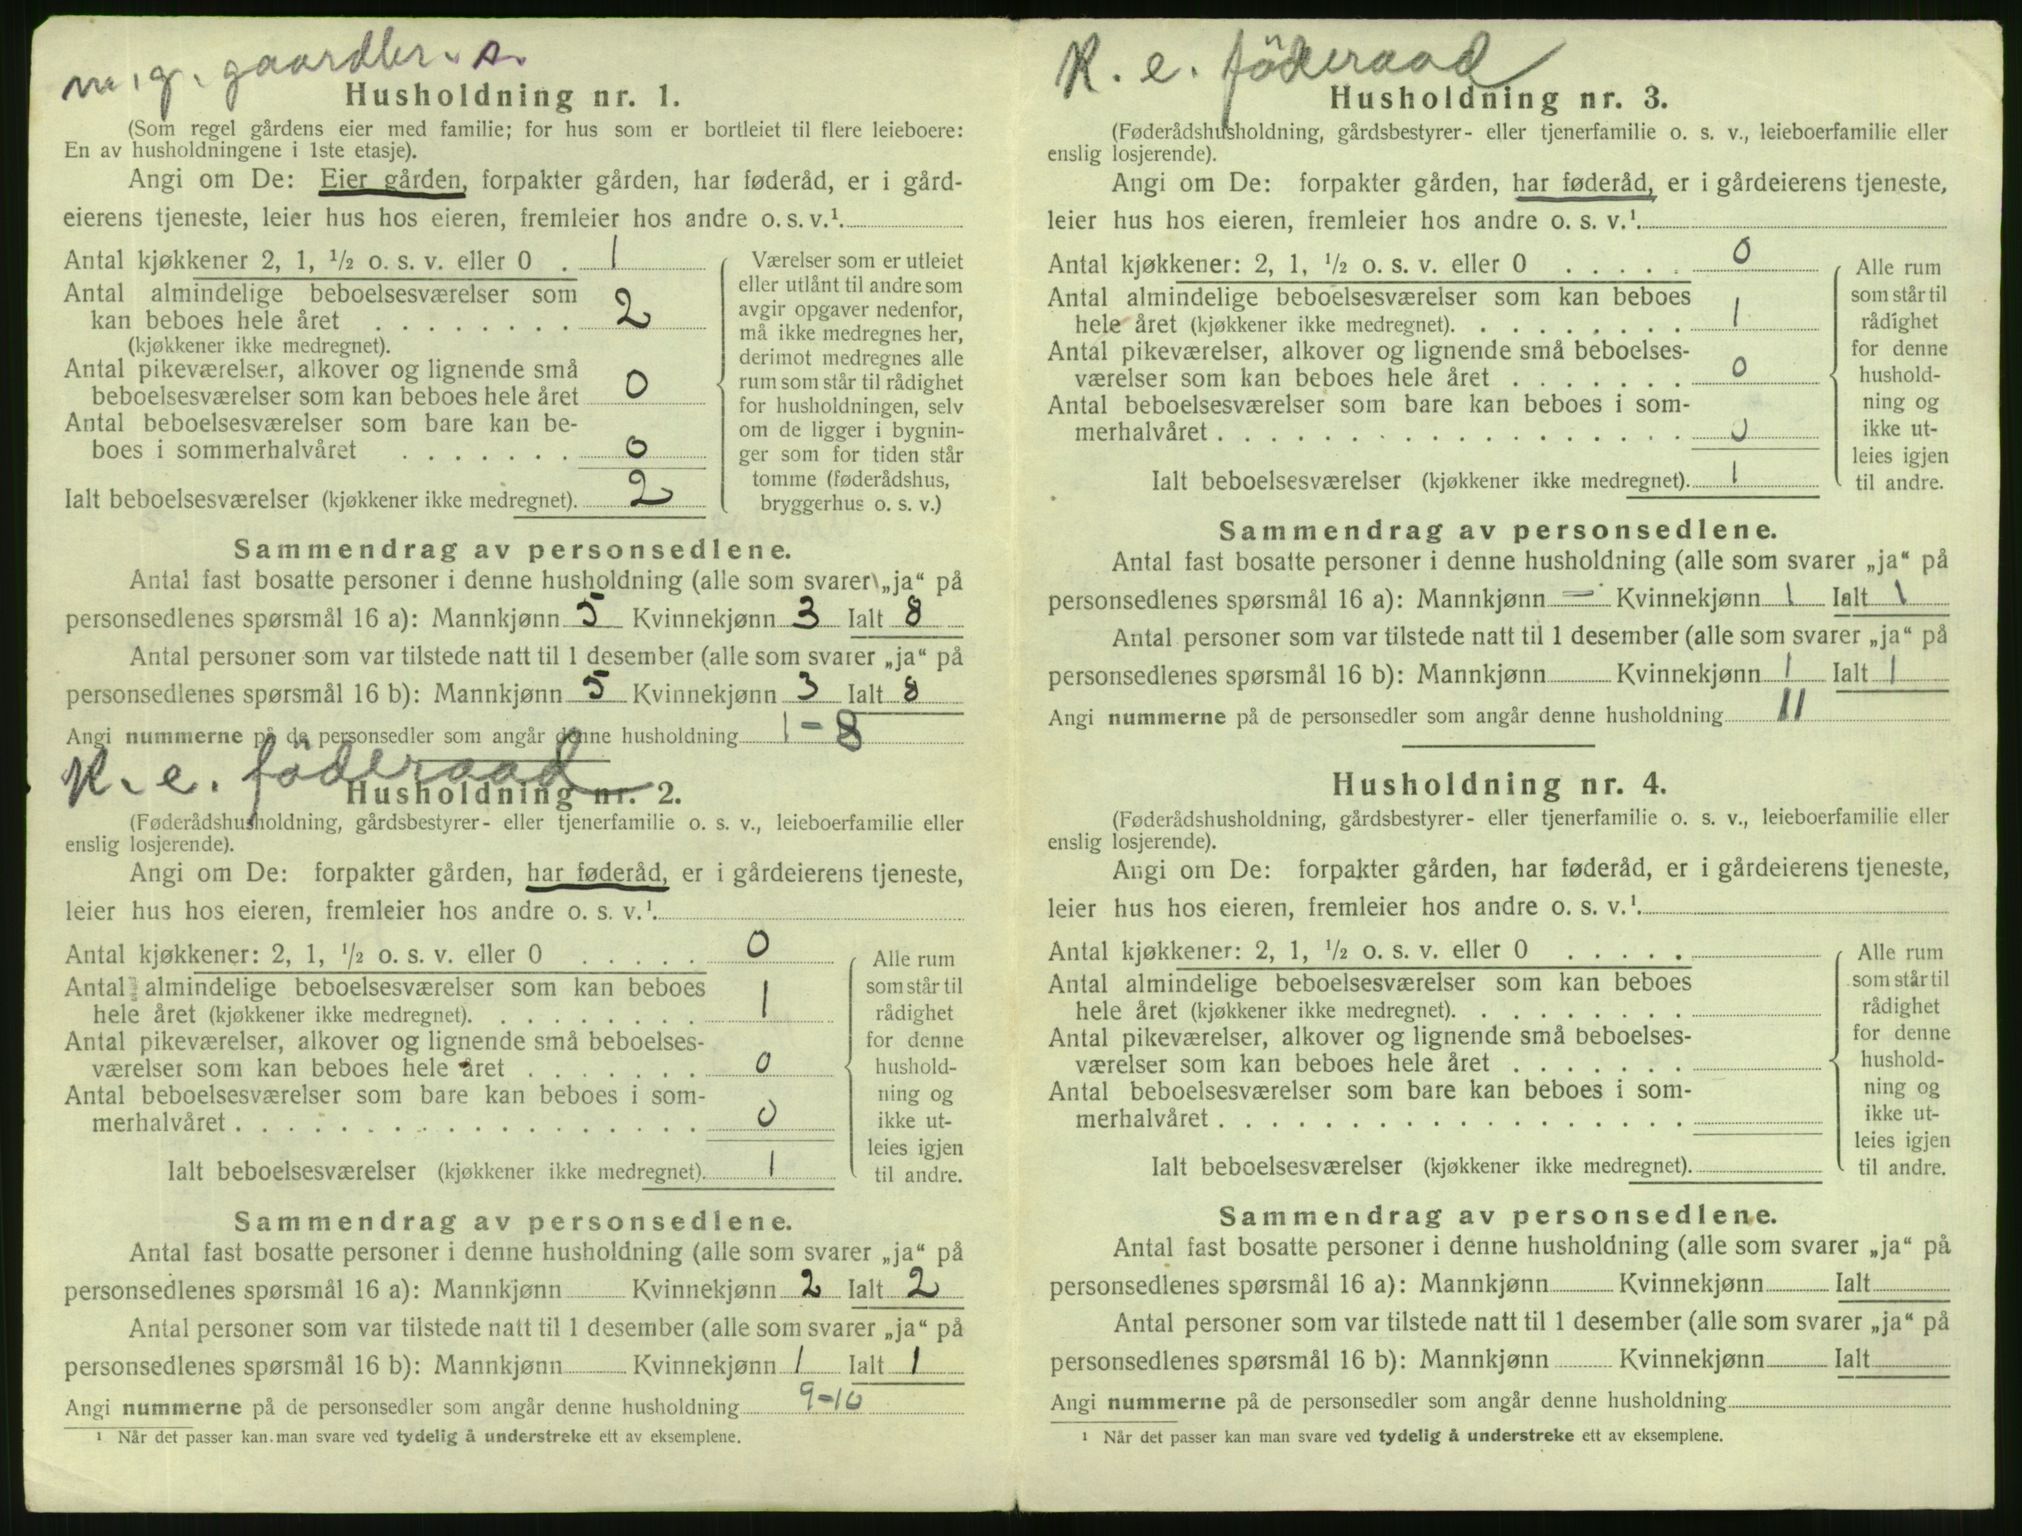 m. g. gaardbr. s.
Husholdning nr. 1.
(Som regel gårdens eier med familie; for hus som er bortleiet til flere leieboere:
En av husholdningene i 1ste etasje).
Angi om De: Eier gården, forpakter gården, har føderåd, er i gård-
eierens tjeneste, leier hus hos eieren, fremleier hos andre o. s. v.¹.
Antal kjøkkener 2, 1, ½ o. s. v. eller 0 . 1
Antal almindelige beboelsesværelser som
kan beboes hele året . . . . . . . . 2
(kjøkkener ikke medregnet).
Antal pikeværelser, alkover og lignende små
beboelsesværelser som kan beboes hele året 0
Antal beboelsesværelser som bare kan be-
boes i sommerhalvåret . . . . . . . 0
Ialt beboelsesværelser (kjøkkener ikke medregnet). 2
Værelser som er utleiet
eller utlånt til andre som
avgir opgaver nedenfor,
må ikke medregnes her,
derimot medregnes alle
rum som står til rådighet
for husholdningen, selv
om de ligger i bygnin-
ger som for tiden står
tomme (føderådshus,
bryggerhus o. s. v.)
Sammendrag av personsedlene.
Antal fast bosatte personer i denne husholdning (alle som svarer „ja“ på
personsedlenes spørsmål 16 a): Mannkjønn 5 Kvinnekjønn 3 Ialt 8
Antal personer som var tilstede natt til 1 desember (alle som svarer „ja“ på
personsedlenes spørsmål 16 b): Mannkjønn 5 Kvinnekjønn 3 Ialt 8
Angi nummerne på de personsedler som angår denne husholdning 1-8
K. e. föderaad
Husholdning nr. 2.
(Føderådshusholdning, gårdsbestyrer- eller tjenerfamilie o. s. v., leieboerfamilie eller
enslig losjerende).
Angi om De: forpakter gården, har føderåd, er i gårdeierens tjeneste,
leier hus hos eieren, fremleier hos andre o. s. v.¹.
Antal kjøkkener: 2, 1, ½ o. s. v. eller 0 . . . . . 0
Antal almindelige beboelsesværelser som kan beboes
hele året (kjøkkener ikke medregnet). . . . . . . . . 1
Antal pikeværelser, alkover og lignende små beboelses-
værelser som kan beboes hele året . . . . . . . 0
Antal beboelsesværelser som bare kan beboes i som-
merhalvåret . . . . . . . . . . . . . . . . . . 0
Ialt beboelsesværelser (kjøkkener ikke medregnet). 1
Alle rum
som står til
rådighet
for denne
hushold-
ning og
ikke ut-
leies igjen
til andre.
Sammendrag av personsedlene.
Antal fast bosatte personer i denne husholdning (alle som svarer „ja“ på
personsedlenes spørsmål 16 a): Mannkjønn Kvinnekjønn 2 Ialt 2
Antal personer som var tilstede natt til 1 desember (alle som svarer „ja“ på
personsedlenes spørsmål 16 b): Mannkjønn Kvinnekjønn 1 Ialt 1
Angi nummerne på de personsedler som angår denne husholdning 9-10
¹ Når det passer kan man svare ved tydelig å understreke ett av eksemplene.
K. e. föderaad
Husholdning nr. 3.
(Føderådshusholdning, gårdsbestyrer- eller tjenerfamilie o. s. v., leieboerfamilie eller
enslig losjerende).
Angi om De: forpakter gården, har føderåd, er i gårdeierens tjeneste,
leier hus hos eieren, fremleier hos andre o. s. v.¹.
Antal kjøkkener: 2, 1, ½ o. s. v. eller 0 . . . . . 0
Antal almindelige beboelsesværelser som kan beboes
hele året (kjøkkener ikke medregnet). . . . . . . . . 1
Antal pikeværelser, alkover og lignende små beboelses-
værelser som kan beboes hele året . . . . . . . 0
Antal beboelsesværelser som bare kan beboes i som-
merhalvåret . . . . . . . . . . . . . . . . . . 0
Ialt beboelsesværelser (kjøkkener ikke medregnet). 1
Alle rum
som står til
rådighet
for denne
hushold-
ning og
ikke ut-
leies igjen
til andre.
Sammendrag av personsedlene.
Antal fast bosatte personer i denne husholdning (alle som svarer „ja“ på
personsedlenes spørsmål 16 a): Mannkjønn – Kvinnekjønn 1 Ialt 1
Antal personer som var tilstede natt til 1 desember (alle som svarer „ja“ på
personsedlenes spørsmål 16 b): Mannkjønn Kvinnekjønn 1 Ialt 1
Angi nummerne på de personsedler som angår denne husholdning 11
Husholdning nr. 4.
(Føderådshusholdning, gårdsbestyrer- eller tjenerfamilie o. s. v., leieboerfamilie eller
enslig losjerende).
Angi om De: forpakter gården, har føderåd, er i gårdeierens tjeneste,
leier hus hos eieren, fremleier hos andre o. s. v.¹.
Antal kjøkkener: 2, 1, ½ o. s. v. eller 0 . . . . .
Antal almindelige beboelsesværelser som kan beboes
hele året (kjøkkener ikke medregnet). . . . . . . . .
Antal pikeværelser, alkover og lignende små beboelses-
værelser som kan beboes hele året . . . . . . .
Antal beboelsesværelser som bare kan beboes i som-
merhalvåret . . . . . . . . . . . . . . . . . .
Ialt beboelsesværelser (kjøkkener ikke medregnet).
Alle rum
som står til
rådighet
for denne
hushold-
ning og
ikke ut-
leies igjen
til andre.
Sammendrag av personsedlene.
Antal fast bosatte personer i denne husholdning (alle som svarer „ja“ på
personsedlenes spørsmål 16 a): Mannkjønn Kvinnekjønn Ialt
Antal personer som var tilstede natt til 1 desember (alle som svarer „ja“ på
personsedlenes spørsmål 16 b): Mannkjønn Kvinnekjønn Ialt
Angi nummerne på de personsedler som angår denne husholdning
¹ Når det passer kan man svare ved tydelig å understreke ett av eksemplene.